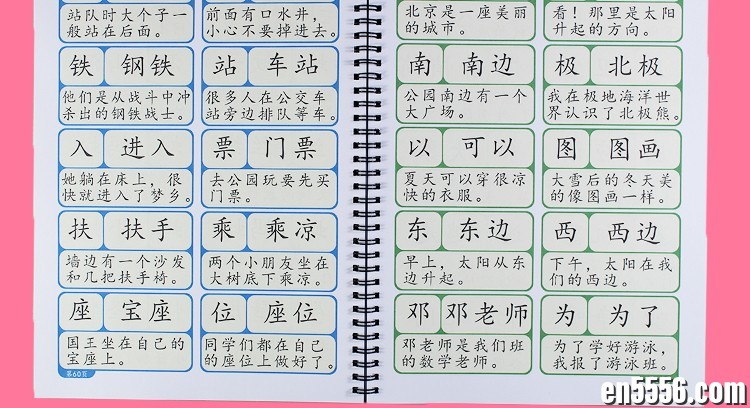 站队时大个子一
般站在后面。
前面有口水井，
小心不要掉进去。
铁 钢铁
他们是从战斗中冲
杀出的钢铁战士。
站 车站
很多人在公交车
站旁边排队等车。
入 进入
她躺在床上，很
快就进入了梦乡。
票 门票
去公园玩要先买
门票。
扶 扶手
墙边有一个沙发
和几把扶手椅。
乘 乘凉
两个小朋友坐在
大树底下乘凉。
座 宝座
国王坐在自己的
宝座上。
位 座位
同学们都在自己
的座位上做好了。
第60页
北京是一座美丽
的城市。
看！那里是太阳
升起的方向。
南 南边
公园南边有一个
大广场。
极 北极
我在极地海洋世
界认识了北极熊。
以 可以
夏天可以穿很凉
快的衣服。
图 图画
大雪后的冬天美
的像图画一样。
东 东边
早上，太阳从东
边升起。
西 西边
下午，太阳在我
们的西边。
邓 邓老师
邓老师是我们班
的数学老师。
为 为了
为了学好游泳，
我报了游泳班。
en5556.com